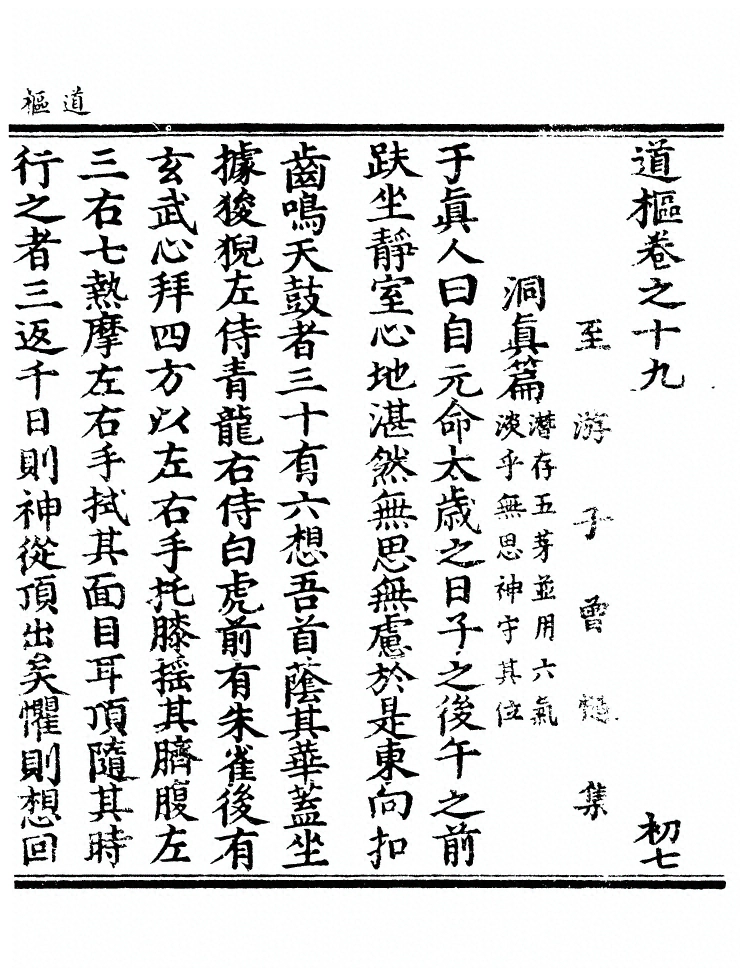 道樞
道樞卷之十九
初七
至游子曾慥集
洞眞篇
潛存五芽並用六氣
淡乎無思神守其位
于眞人曰自元命太歲之日子之後午之前
趺坐靜室心地湛然無思無慮於是東向扣
齒鳴天鼓者三十有六想吾首蔭其華蓋坐
據狻猊左侍青龍右侍白虎前有朱雀後有
玄武心拜四方以左右手托膝搖其臍腹左
三右七熱摩左右手拭其面目耳頂隨其時
行之者三返千日則神從頂出矣懼則想回